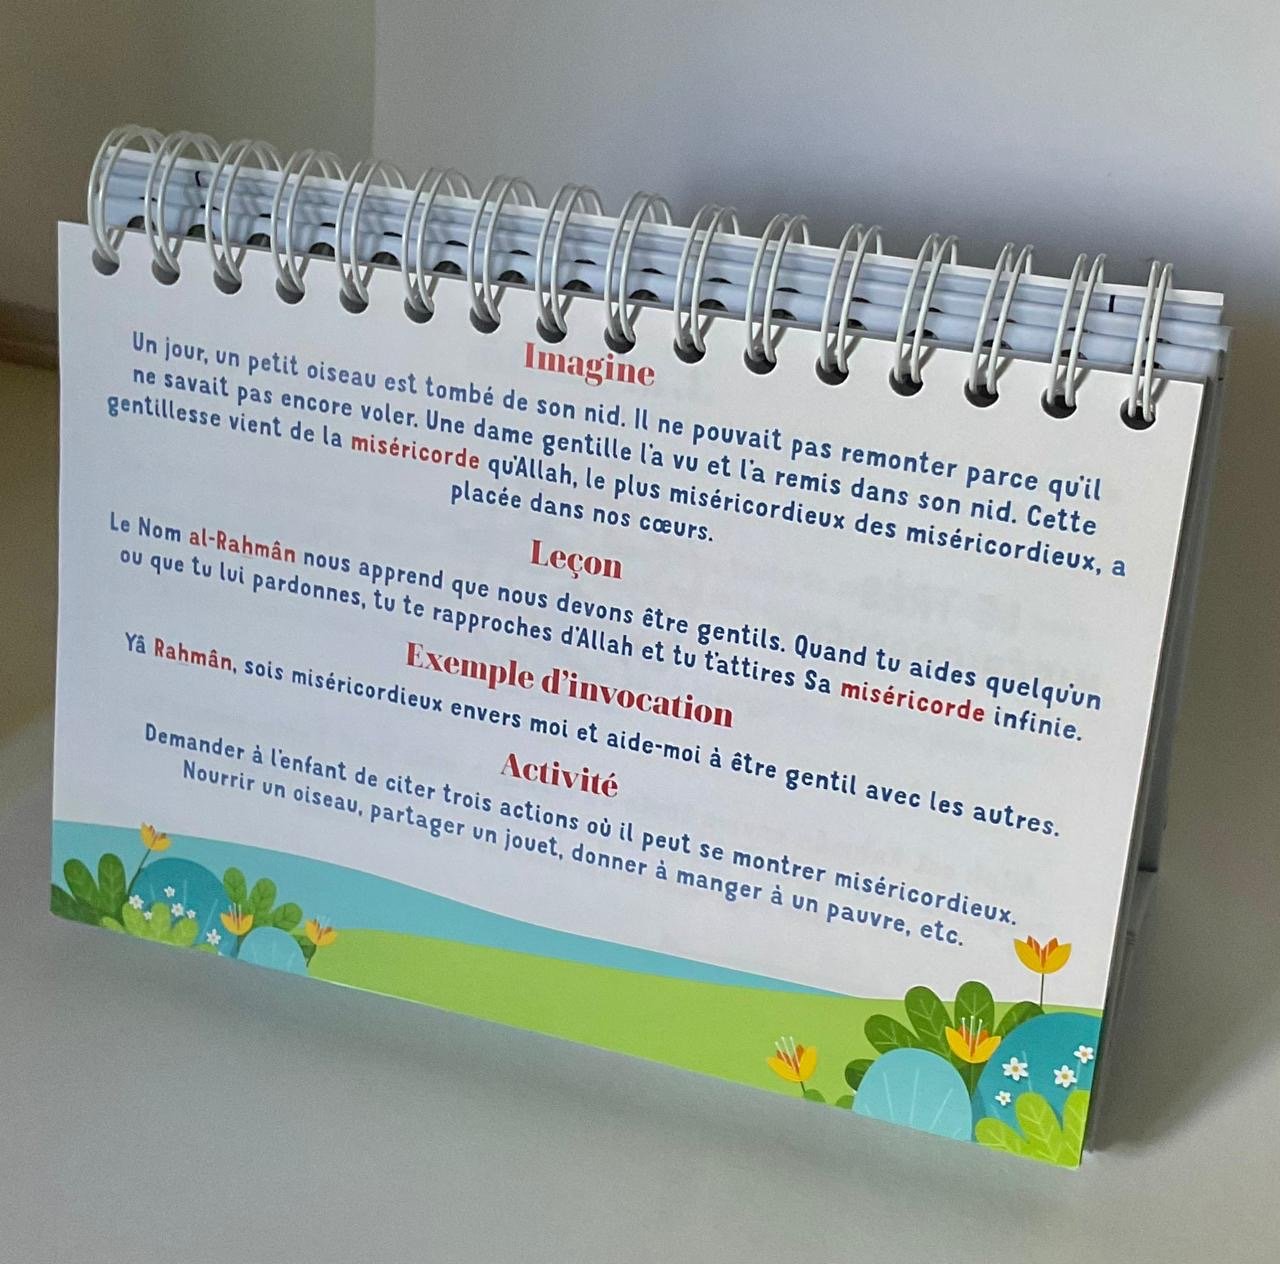 Imagine
Un jour, un petit oiseau est tombé de son nid. Il ne pouvait pas remonter parce qu'il
ne savait pas encore voler. Une dame gentille l'a vu et l'a remis dans son nid. Cette
gentillesse vient de la miséricorde qu'Allah, le plus miséricordieux des miséricordieux, a
placée dans nos cœurs.
Leçon
Le Nom al-Rahmân nous apprend que nous devons être gentils. Quand tu aides quelqu'un
ou que tu lui pardonnes, tu te rapproches d'Allah et tu t'attires Sa miséricorde infinie.
Exemple d'invocation
Yâ Rahmân, sois miséricordieux envers moi et aide-moi à être gentil avec les autres.
Activité
Demander à l'enfant de citer trois actions où il peut se montrer miséricordieux.
Nourrir un oiseau, partager un jouet, donner à manger à un pauvre, etc.